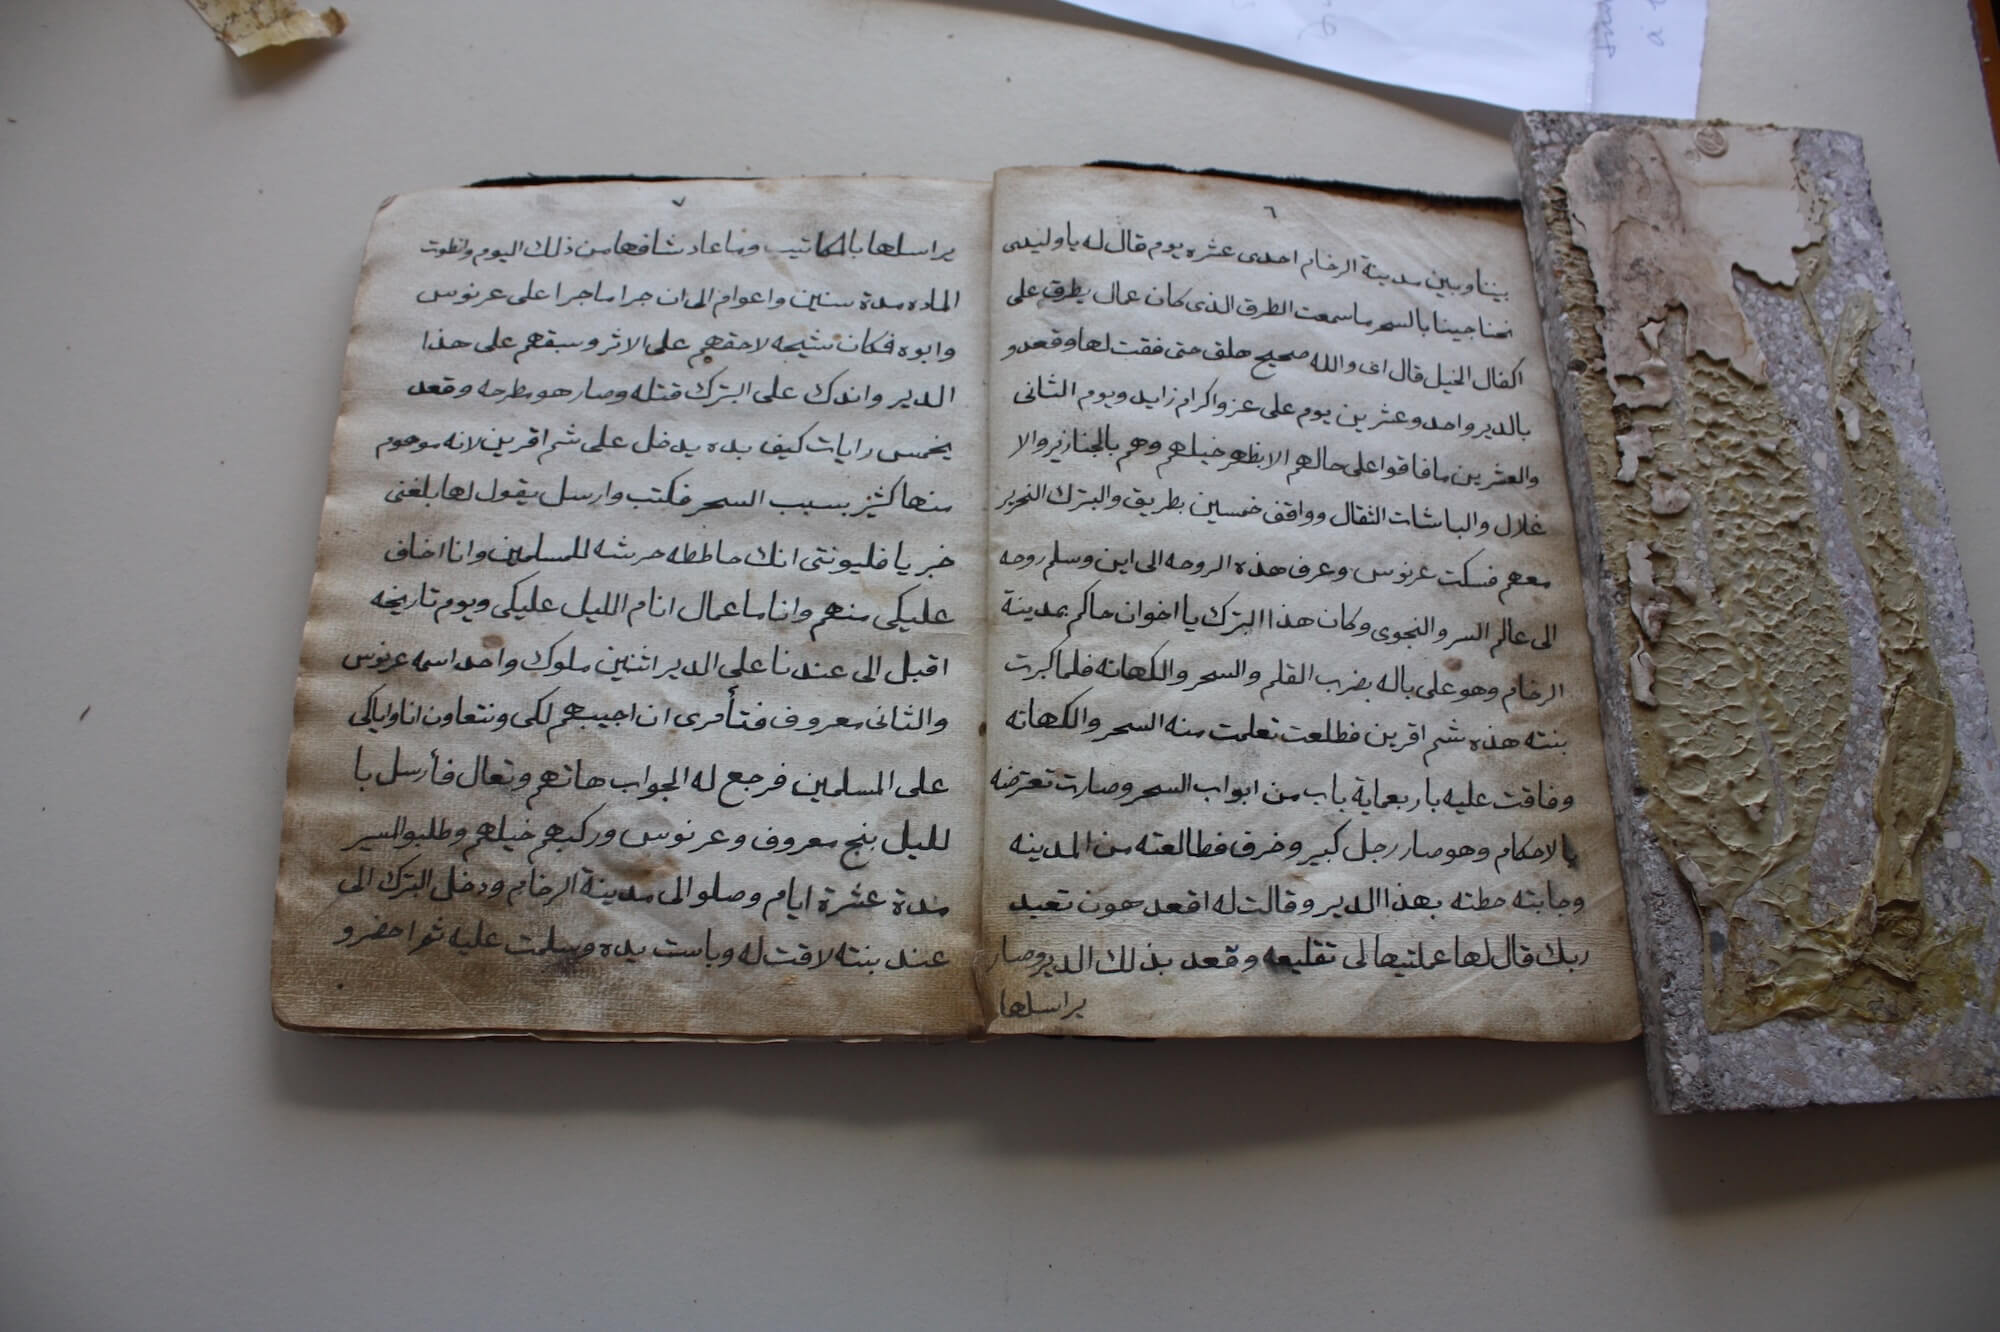 ٦
بيننا وبين مدينة الرخام احدى عشره يوم قال له يا وليدى
نحنا جينا بالسحر ما سمعت الطرق الذى كان عمال يطرق على
اكفال الخيل قال اى والله صحيح هلق حتى فقت لها وقعدو
بالدير واحد وعشرين يوم على عز واكرام زايد ويوم الثانى
والعشرين ما فاقوا على حالهم الا بظهر خيلهم وهم بالجنازير والا
غلال والباشات الثقال وواقف خمسين بطريق والبترك النحرير
معهم فسكت عرنوس وعرف هذه الروحه الى اين وسلم روحه
الى عالم السر والنجوى وكان هذا البترك يا اخوان حاكم بمدينة
الرخام وهو على باله بضرب القلم والسحر والكهانه فلما كبرت
بنته هذه شم اقرين فطلعت تعلمت منه السحر والكهانه
وفاقت عليه باربعماية باب من ابواب السحر وصارت تعترضه
بالاحكام وهو صار رجل كبير وخرف فطالعته من المدينه
وجابته حطته بهذا الدير وقالت له اقعد هون تعبد
ربك قال لها عملتيها لى تقليعه وقعد بذلك الدير وصار
يراسلها
٧
يراسلها بالمكاتيب وما عاد شافها من ذلك اليوم وانطوت
الماده مدة سنين واعوام الى ان جرا ما جرا على عرنوس
وابوه فكان شيحه لاحقهم على الاثر وسبقهم على هذا
الدير واندك على البترك قتله وصار هو مطرحه وقعد
يخمس رايات كيف بده يدخل على شم اقرين لانه موهوم
منها كثير بسبب السحر فكتب وارسل يقول لها بلغنى
خبر يا فليونتى انك حاططه حرشه للمسلمين وانا اخاف
عليكى منهم وانا ما عمال انام الليل عليكى ويوم تاريخه
اقبل الى عندنا على الدير اثنين ملوك واحد اسمه عرنوس
والثانى معروف فتأمرى ان اجيبهم لكى ونتعاون انا واياكى
على المسلمين فرجع له الجواب هاتهم وتعال فأرسل با
لليل بنج معروف وعرنوس وركبهم خيلهم وطلبو السير
مدة عشرة ايام وصلو الى مدينة الرخام ودخل البترك الى
عند بنته لاقت له وباست يده وسلمت عليه ثم احضرو